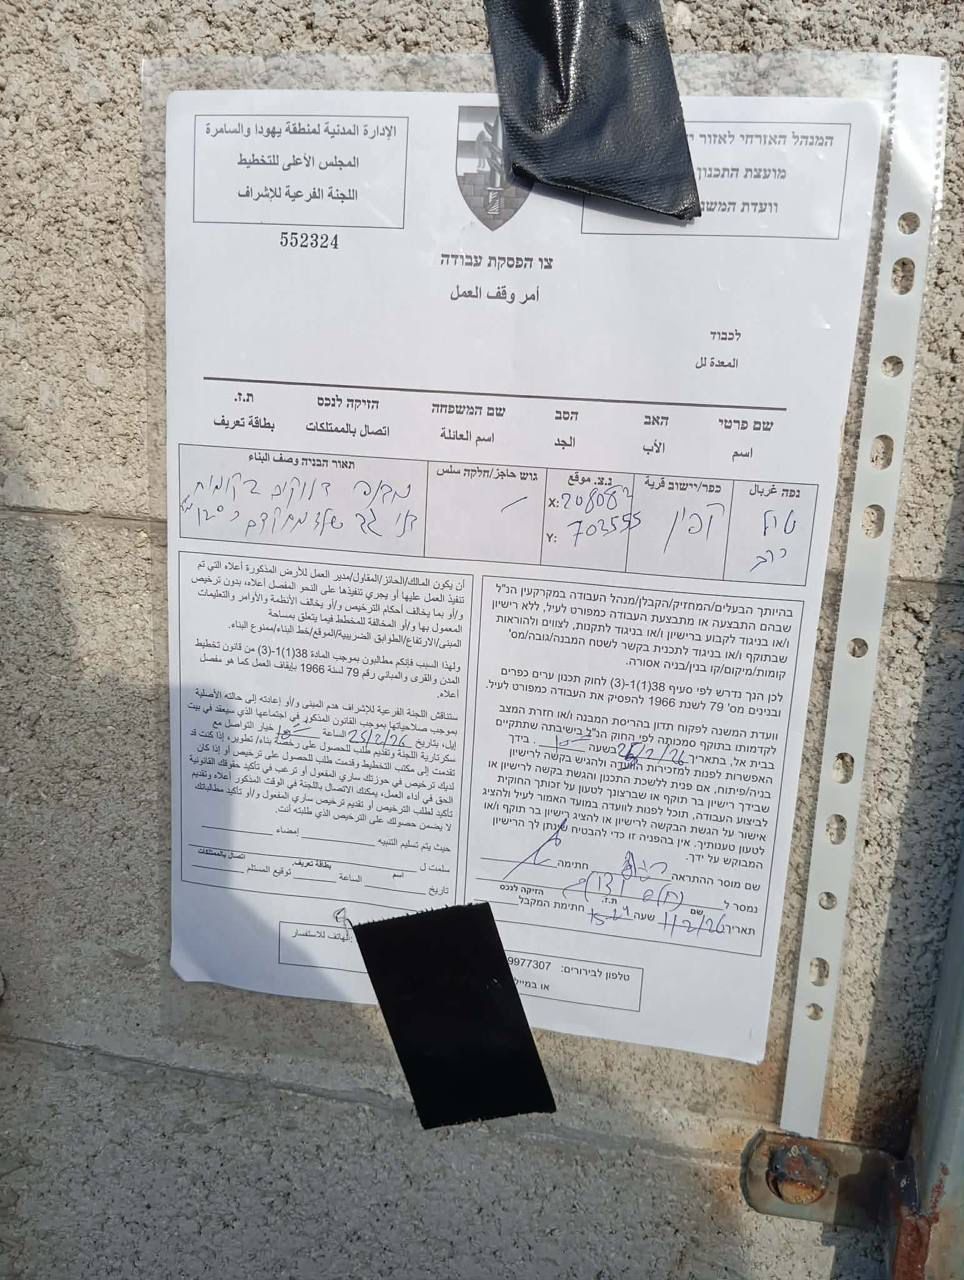 الإدارة المدنية لمنطقة يهودا والسامرة
المجلس الأعلى للتخطيط
اللجنة الفرعية للإشراف
המנהל האזרחי לאזור
מועצת התכנון
וועדת
552324
צו הפסקת עבודה
أمر وقف العمل
לכבוד
המعدة لل
שם פרטי האב הסב שם המשפחה הזיקה לנכס ת.ז.
اسم الأب الجد اسم العائلة اتصال بالممتلكات بطاقة تعريف
נפה غربال כפר/יישוב قرية נ.צ. موقع גוש حاجز/חלקה سلس תאור הבניה وصف البناء
קפין
X: 208082
Y: 703555
בהיותך הבעלים/המחזיק/הקבלן/מנהל העבודה במקרקעין הנ"ל
שבהם התבצעה או מתבצעת העבודה כמפורט לעיל, ללא רישיון
ו/או בניגוד לקבוע ברישיון ו/או בניגוד לתקנות, לצווים ולהוראות
שבתוקף ו/או בניגוד לתכנית בקשר לשטח המבנה/גובה/מס'
קומות/מיקום/קו בנין/בניה אסורה.
לכן הנך נדרש לפי סעיף 38(1)-(3) לחוק תכנון ערים כפרים
ובנינים מס' 79 לשנת 1966 להפסיק את העבודה כמפורט לעיל.
וועדת המשנה לפיקוח תדון בהריסת המבנה ו/או חזרת המצב
לקדמותו בתוקף סמכותה לפי החוק הנ"ל בישיבתה שתתקיים
בבית אל, בתאריך 25/2/26 בשעה בידך
האפשרות לפנות למזכירות הוועדה ולהגיש בקשה לרישיון
בניה/פיתוח, אם פנית ללשכת התכנון והגשת בקשה לרישיון או
שבידך רישיון בר תוקף או שברצונך לטעון על זכותך החוקית
לביצוע העבודה, תוכל לפנות לוועדה במועד האמור לעיל ולהציג
אישור על הגשת הבקשה לרישיון או להציג רישיון בר תוקף ו/או
לטעון טענותיך. אין בהפניה זו כדי להבטיח שינתן לך הרישיון
המבוקש על ידך.
שם מוסר ההתראה חתימה
נמסר ל
שם ת.ז. הזיקה לנכס
תאריך 11/2/26 שעה חתימת המקבל
أن يكون المالك/الحائز/المقاول/مدير العمل للأرض المذكورة أعلاه التي تم
تنفيذ العمل عليها أو يجري تنفيذها على النحو المفصل أعلاه، بدون ترخيص
و/أو بما يخالف أحكام الترخيص و/أو يخالف الأنظمة والأوامر والتعليمات
المعمول بها و/أو المخالفة للمخطط فيما يتعلق بمساحة
المبنى/الارتفاع/الطوابق الضريبية/الموقع/خط البناء/ممنوع البناء.
ولهذا السبب فإنكم مطالبون بموجب المادة 38(1)-(3) من قانون تخطيط
المدن والقرى والمباني رقم 79 لسنة 1966 بإيقاف العمل كما هو مفصل
أعلاه.
ستناقش اللجنة الفرعية للإشراف هدم المبنى و/أو إعادته إلى حالته الأصلية
بموجب صلاحياتها بموجب القانون المذكور في اجتماعها الذي سيعقد في بيت
إيل، بتاريخ 25/2/26 الساعة خيار التواصل مع
سكرتارية اللجنة وتقديم طلب للحصول على رخصة بناء/ تطوير، إذا كنت قد
تقدمت إلى مكتب التخطيط وقدمت طلب للحصول على ترخيص أو إذا كان
لديك ترخيص في حوزتك ساري المفعول أو ترغب في تأكيد حقوقك القانونية
الحق في أداء العمل، يمكنك الاتصال باللجنة في الوقت المذكور أعلاه وتقديم
تأكيد لطلب الترخيص أو تقديم ترخيص ساري المفعول و/أو تأكيد مطالباتك
لا يضمن حصولك على الترخيص الذي طلبته أنت.
حيث يتم تسليم التنبيه إمضاء
سلمت ل
اسم بطاقة تعريف اتصال بالممتلكات
تاريخ الساعة توقيع المستلم
الهاتف للاستفسار
טלפון לבירורים: 9977307
או במייל